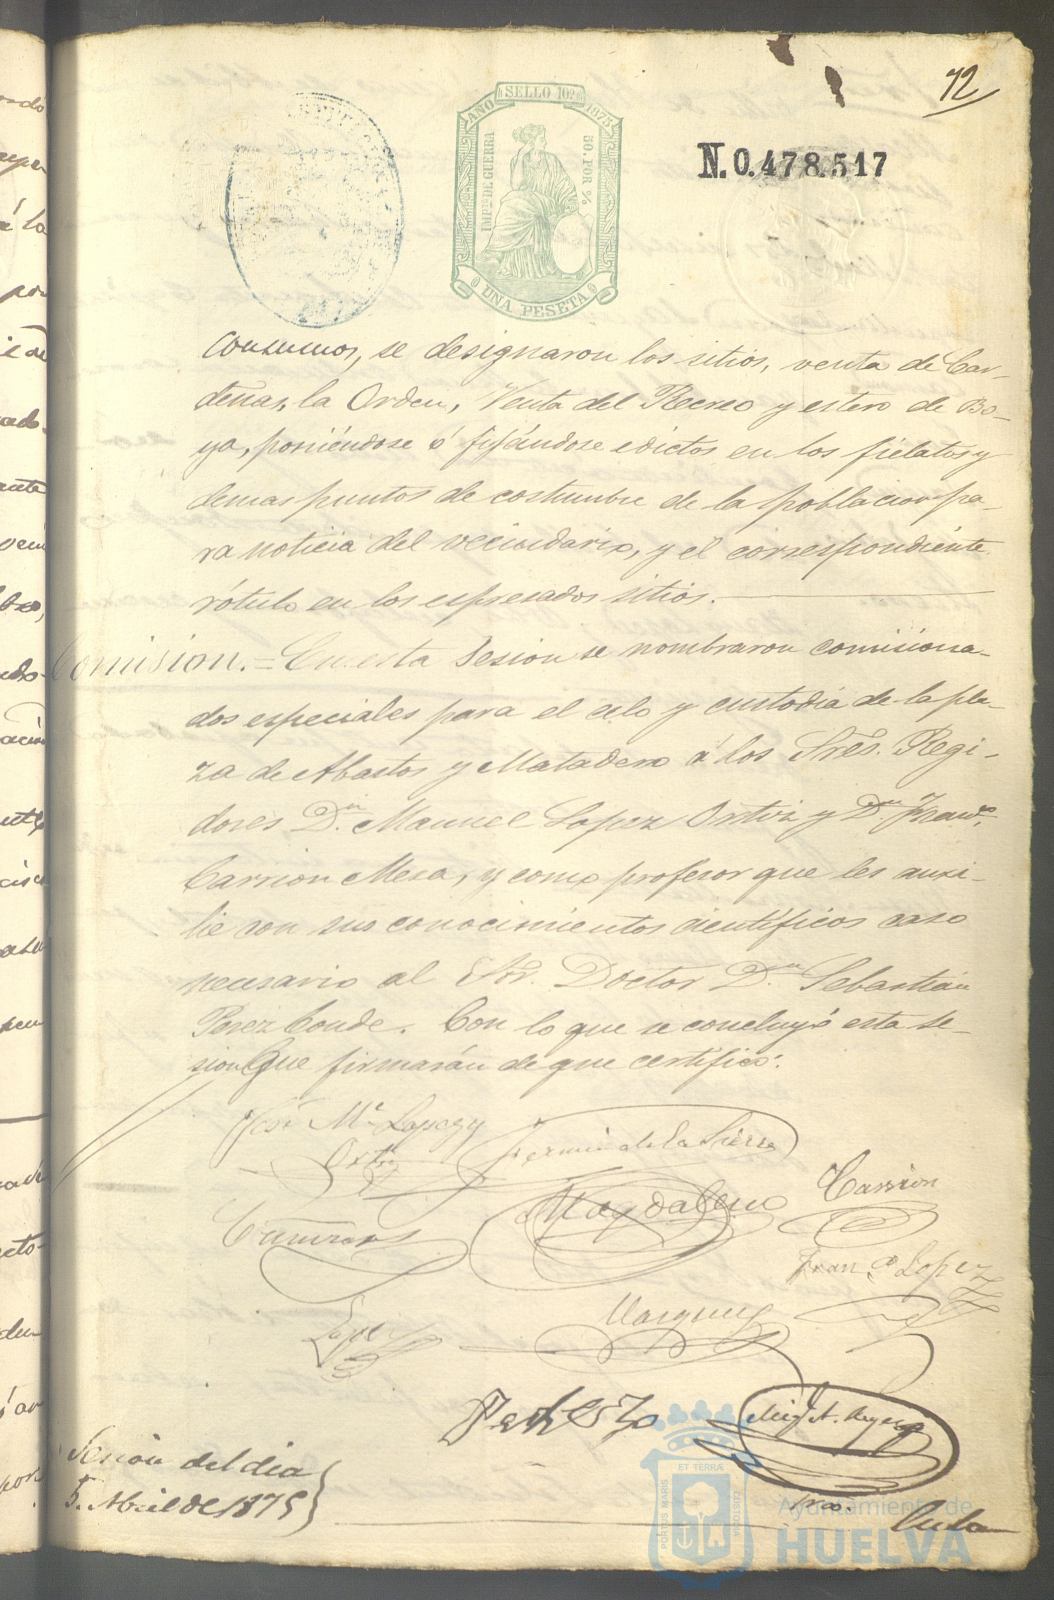 72
AÑO SELLO 10º 1875
IMP.to DE GUERRA
50. POR %
UNA PESETA
N. 0.478.517
Consumos, se designaron los sitios, venta de Car-
denas, la Orden, Venta del Recreo y estero de Bo-
ya, poniéndose ó fijándose edictos en los fielatos y
demas puntos de costumbre de la poblacion pa-
ra noticia del vecindario, y el correspondiente
rótulo en los espresados sitios.
Comisión.= En esta Sesion se nombraron comisiona-
dos especiales para el celo y custodia de la pla-
za de Abastos y Matadero á los Sres. Regi-
dores D.n Manuel Lopez Ortiz y D.n Fran.co
Carrion Mesa, y como profesor que les auxi-
lie con sus conocimientos científicos caso
necesario al Sor. Doctor D.n Sebastián
Perez Conde. Con lo que se concluyó esta se-
sion que firmarán de que certifico.
José M.ª Lopez y
Ortiz
Fermin de la Sierra
Magdaleno
Carrion
Fran.co Lopez
Lopez
Marquez
Sesion del dia
5. Abril de 1875
En la
PORTUS MARIS ET TERRÆ CUSTODIA
Ayuntamiento de
HUELVA